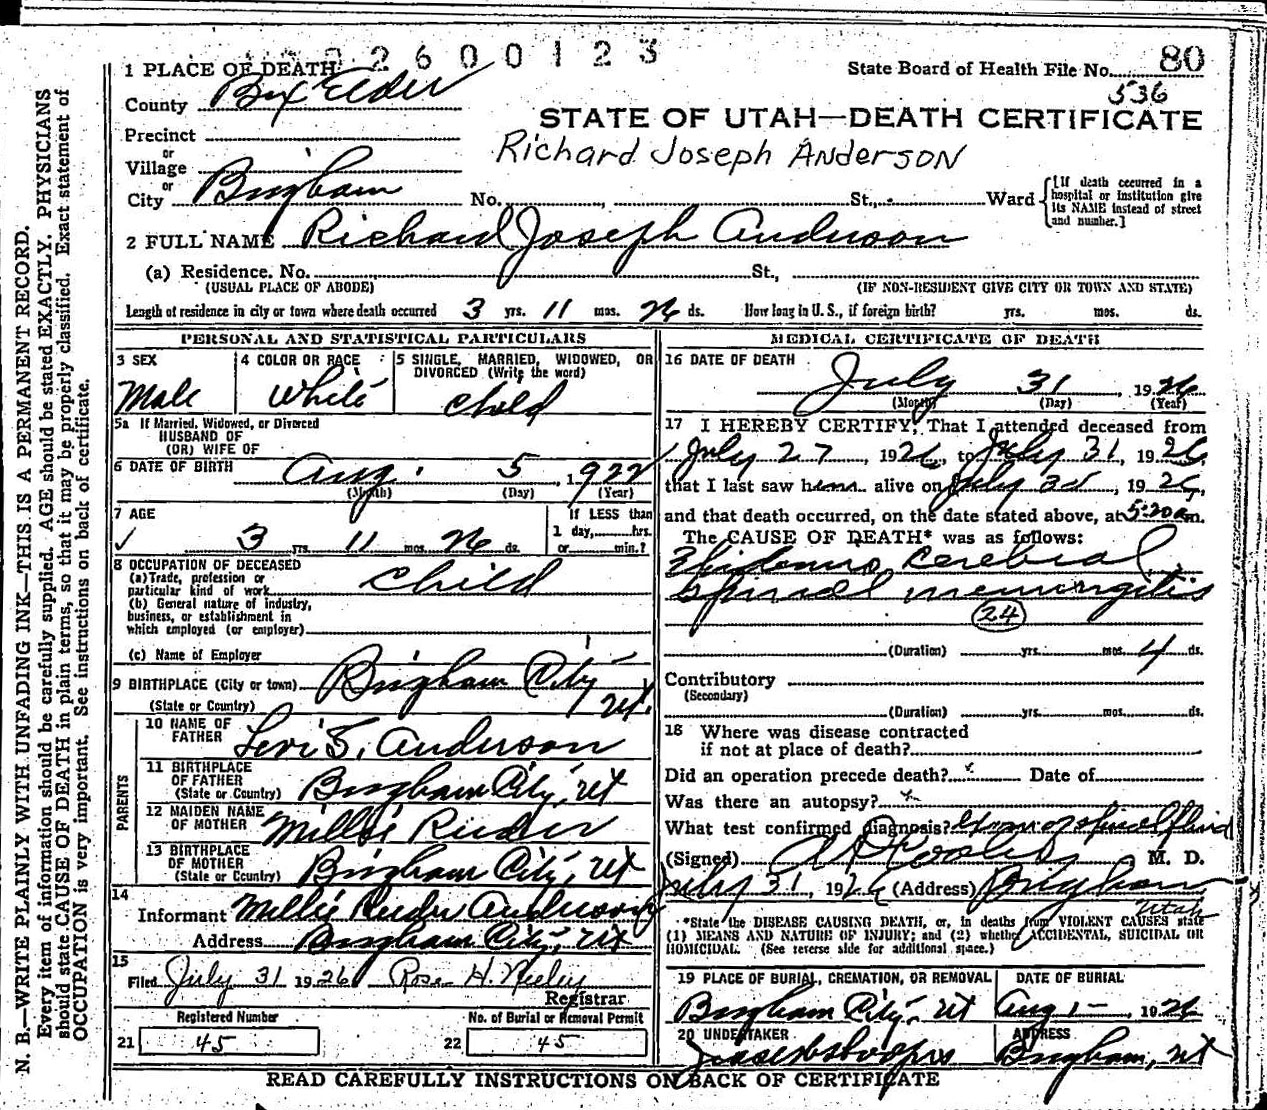 2600123
80
1 PLACE OF DEATH
State Board of Health File No.
536
County Box Elder
STATE OF UTAH—DEATH CERTIFICATE
Precinct
or
Richard Joseph Anderson
Village
or
City Brigham No. , St., Ward
[If death occurred in a hospital or institution give its NAME instead of street and number.]
2 FULL NAME Richard Joseph Anderson
(a) Residence. No. St.,
(USUAL PLACE OF ABODE) (IF NON-RESIDENT GIVE CITY OR TOWN AND STATE)
Length of residence in city or town where death occurred 3 yrs. 11 mos. 26 ds. How long in U. S., if foreign birth? yrs. mos. ds.
PERSONAL AND STATISTICAL PARTICULARS
3 SEX
Male
4 COLOR OR RACE
White
5 SINGLE, MARRIED, WIDOWED, OR DIVORCED (Write the word)
Child
5a If Married, Widowed, or Divorced
HUSBAND OF
(OR) WIFE OF
6 DATE OF BIRTH Aug. 5, 1922
(Month) (Day) (Year)
7 AGE
3 yrs. 11 mos. 26 ds.
If LESS than
1 day, hrs.
or min.?
8 OCCUPATION OF DECEASED
(a) Trade, profession or
particular kind of work Child
(b) General nature of industry,
business, or establishment in
which employed (or employer)
(c) Name of Employer
9 BIRTHPLACE (City or town) Brigham City
(State or Country) Ut.
PARENTS
10 NAME OF FATHER Levi S. Anderson
11 BIRTHPLACE OF FATHER (State or Country) Brigham City, Ut
12 MAIDEN NAME OF MOTHER Millie Reeder
13 BIRTHPLACE OF MOTHER (State or Country) Brigham City, Ut
14
Informant Millie Reeder Anderson
Address Brigham City, Ut
15
Filed July 31 1926 Rose H. Neeley
Registrar
Registered Number No. of Burial or Removal Permit
21 45 22 45
MEDICAL CERTIFICATE OF DEATH
16 DATE OF DEATH
July 31 1926
(Month) (Day) (Year)
17 I HEREBY CERTIFY, That I attended deceased from
July 27, 1926, to July 31, 1926,
that I last saw him alive on July 30, 1926,
and that death occurred, on the date stated above, at 5:20 a m.
The CAUSE OF DEATH* was as follows:
Epidemic Cerebral
Spinal meningitis
24
(Duration) yrs. mos. 4 ds.
Contributory
(Secondary)
(Duration) yrs. mos. ds.
18 Where was disease contracted
if not at place of death?
Did an operation precede death? Date of
Was there an autopsy?
What test confirmed diagnosis? spinal fluid
(Signed) M. D.
July 31, 1926 (Address) Brigham
Utah
*State the DISEASE CAUSING DEATH, or, in deaths from VIOLENT CAUSES state
(1) MEANS AND NATURE OF INJURY; and (2) whether ACCIDENTAL, SUICIDAL OR
HOMICIDAL. (See reverse side for additional space.)
19 PLACE OF BURIAL, CREMATION, OR REMOVAL DATE OF BURIAL
Brigham City, Ut Aug 1 — , 1926
20 UNDERTAKER ADDRESS
Brigham, Ut
READ CAREFULLY INSTRUCTIONS ON BACK OF CERTIFICATE
N. B.—WRITE PLAINLY WITH UNFADING INK—THIS IS A PERMANENT RECORD.
Every item of information should be carefully supplied. AGE should be stated EXACTLY. PHYSICIANS
should state CAUSE OF DEATH in plain terms, so that it may be properly classified. Exact statement of
OCCUPATION is very important. See instructions on back of certificate.